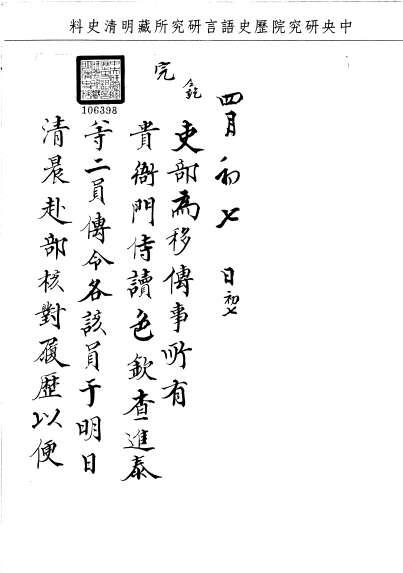 中央研究院歷史語言研究所藏明清史料
106398
四月初七日初七
完
吏部為移傳事所有
貴衙門侍讀色欽查進泰
等二員傳令各該員于明日
清晨赴部核對履歷以便